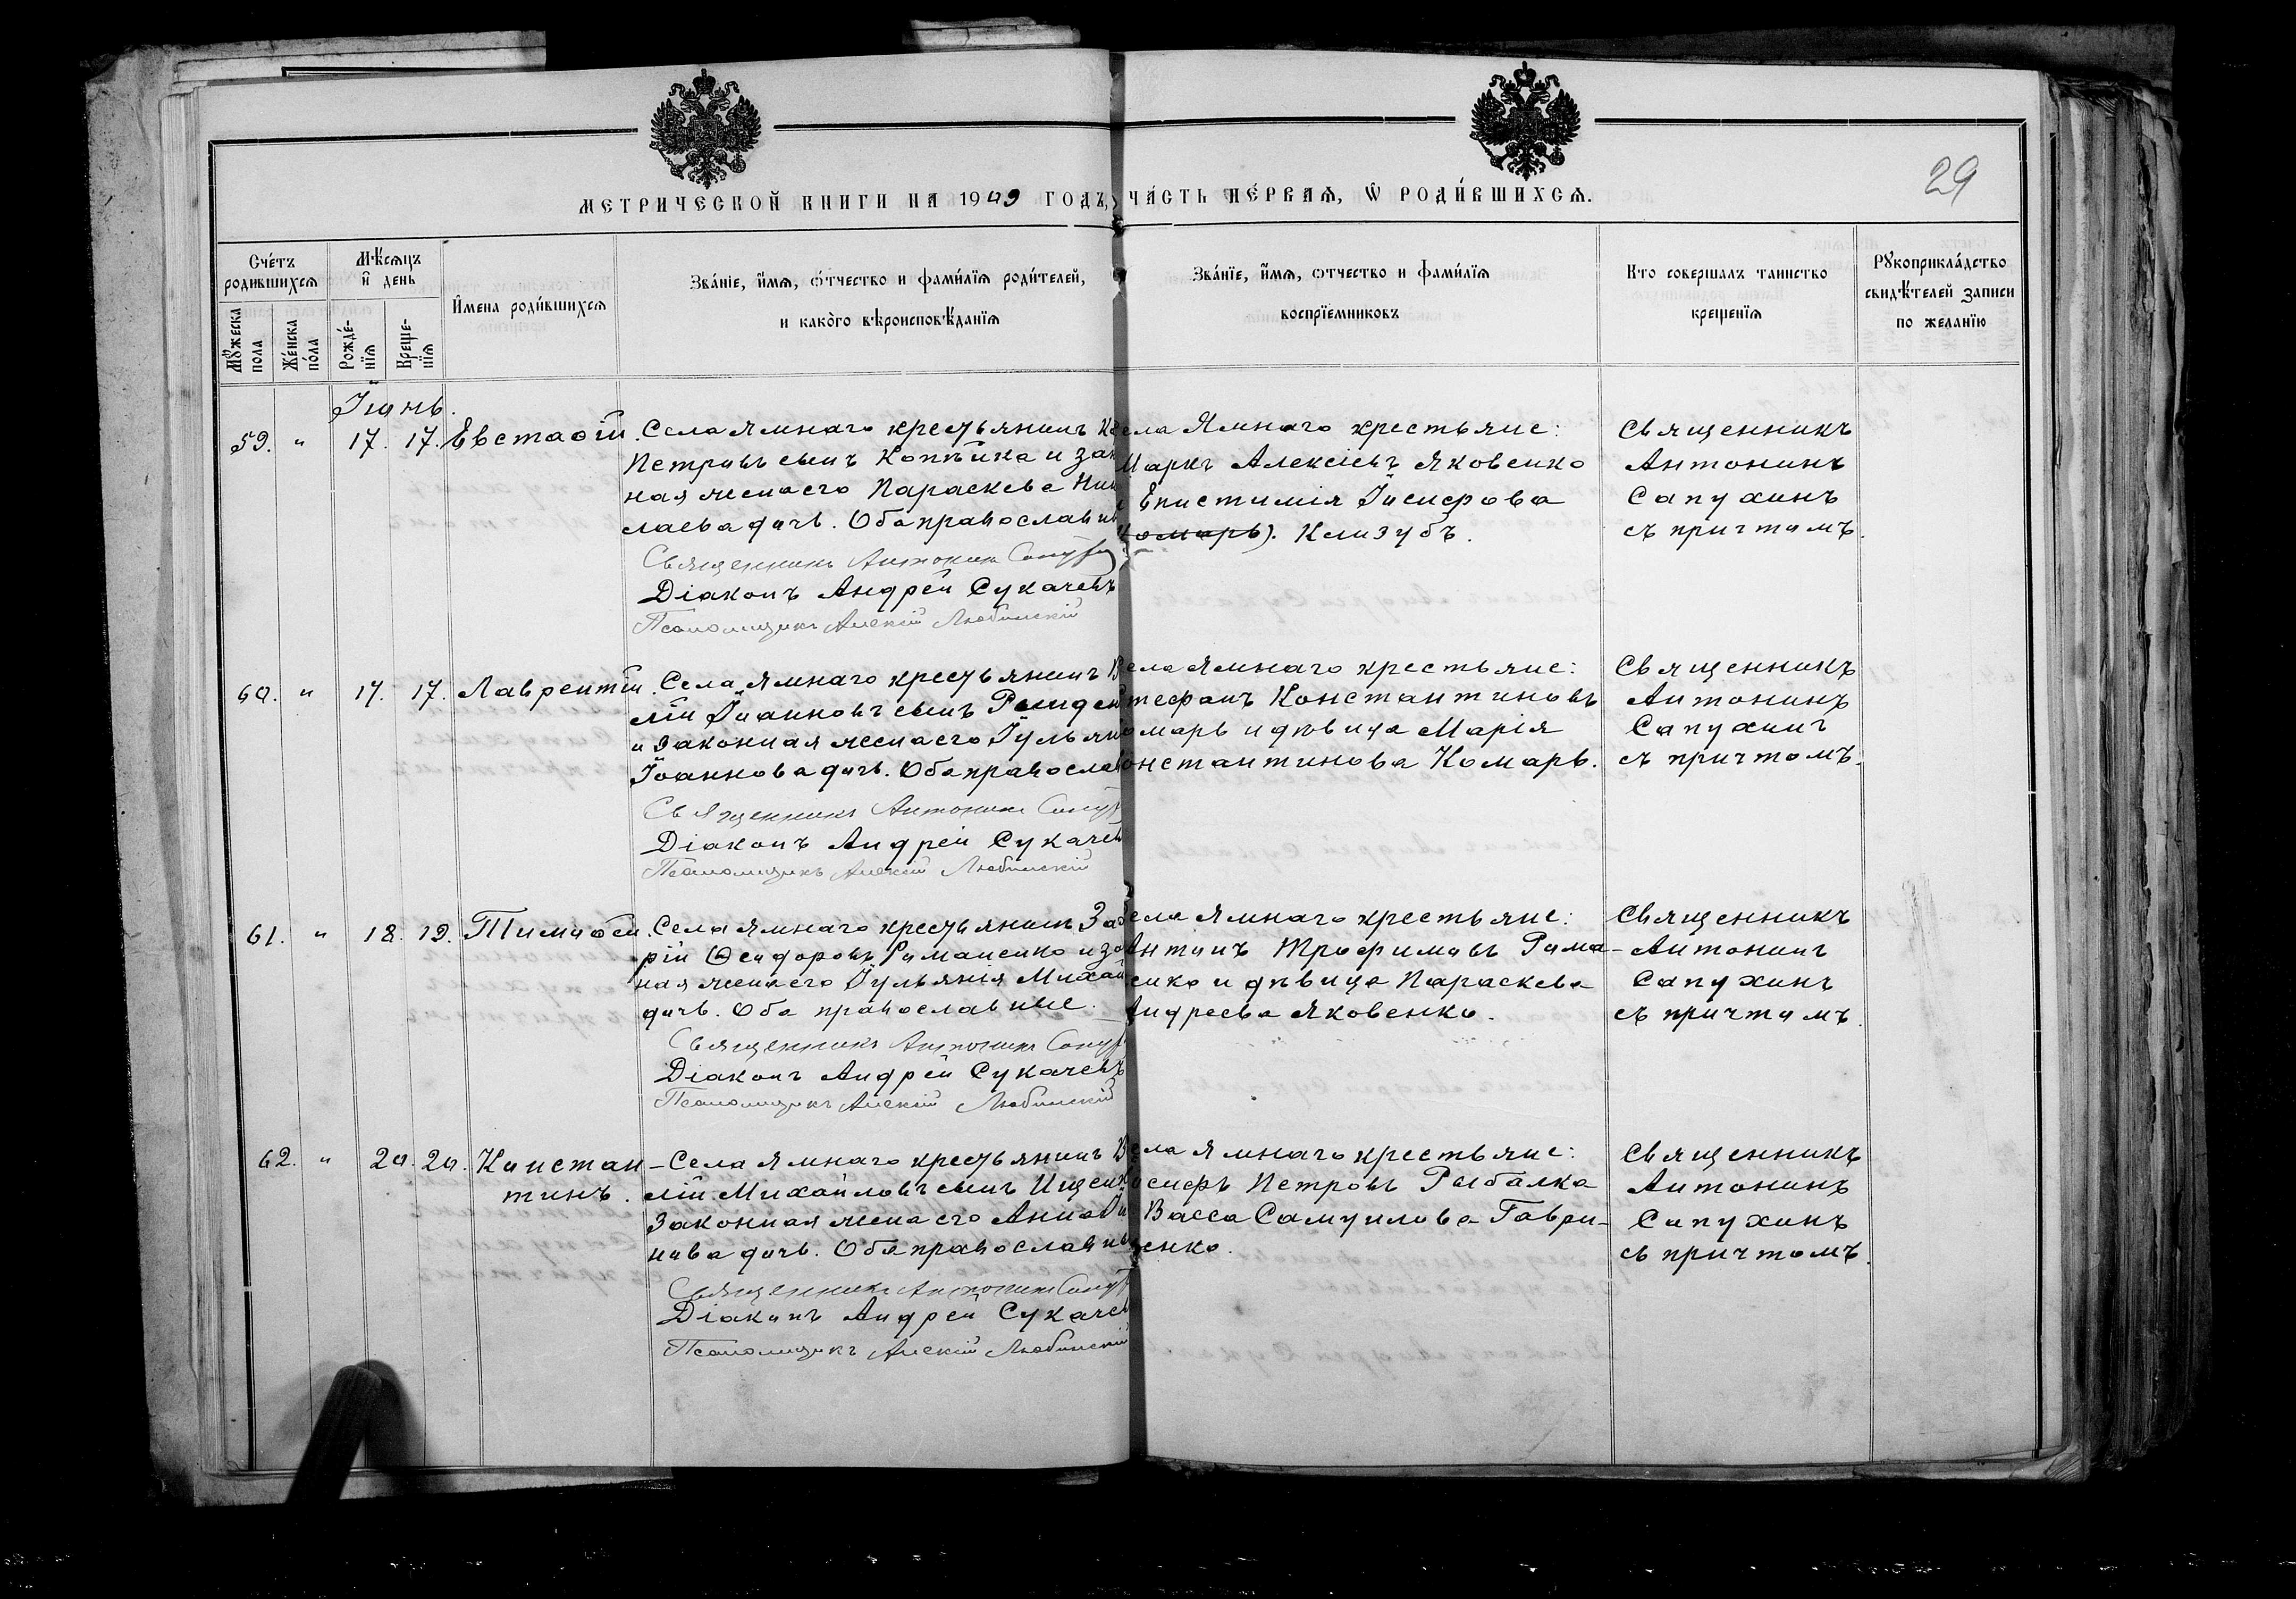 29
МЕТРИЧЕСКОЙ КНИГИ НА 1909 ГОДЪ, ЧА́СТЬ ПЕ́РВАЯ, Ѡ РОДИ́ВШИХСЯ.
Сче́тъ родившихся
Мѣсяцъ и день
Имена роди́вшихся
Зва́нїе, и́мя, о́тчество и фами́лїя роди́телей, и како́го вѣроисповѣ́данїя
Зва́нїе, и́мя, отчество и фами́лїя воспрїемниковъ
Кто совершалъ таинство крещенїя
Рꙋкоприкла́дство свидѣ́телей записи по желанїю
Мꙋ́жеска пола
Же́нска по́ла
Рожде́нїя
Креще́нїя
Іюнь.
59. " 17. 17. Евстаѳій. Села Ямнаго крестьянинъ
Петровъ сынъ Копѣйка и
ная жена его Параскева
лаева дочь. Оба православн
Священникъ Антонин
Діаконъ Андрей Сукачевъ
Псаломщикъ Алексій Любинскій
ела Ямнаго крестьяне:
Маркъ Алексіевъ Яковенко
и Епистимія Іосифова
Комарь). Клизубъ.
Священникъ
Антонинъ
Сапухинъ
съ причтомъ.
60. " 17. 17. Лаврентій. Села Ямнаго крестьянинъ В
лій Іоанновъ сынъ
и законная жена его Іульян
Іоаннова дочь. Оба православ
Священникъ Антонин
Діаконъ Андрей Сукачев
Псаломщикъ Алексій Любинскій
ела Ямнаго крестьяне:
тефанъ Константиновъ
омарь и дѣвица Марія
онстантинова Комарь.
Священникъ
Антонинъ
Сапухинъ
съ причтомъ.
61. " 18. 19. Тимоѳей. Села Ямнаго крестьянинъ За
рій Ѳеодоровъ Романенко и за
ная жена его Іульянія Михай
дочь. Оба православные.
Священникъ Антонин
Діаконъ Андрей Сукачевъ
Псаломщикъ Алексій Любинскій
ела Ямнаго крестьяне:
Антонъ Трофимовъ Рома-
енко и дѣвица Параскева
Андреева Яковенко.
Священникъ
Антонинъ
Сапухинъ
съ причтомъ.
62. " 20. 20. Констан- Села Ямнаго крестьянинъ В
тинъ. лій Михайловъ сынъ Ищенк
законная жена его Анна
нова дочь. Оба православны
Священникъ Антонин
Діаконъ Андрей Сукачев
Псаломщикъ Алексій Любинскій
ела Ямнаго крестьяне:
осифъ Петровъ Рыбалка
Васса Самуилова Гаври-
ленко.
Священникъ
Антонинъ
Сапухинъ
съ причтомъ.